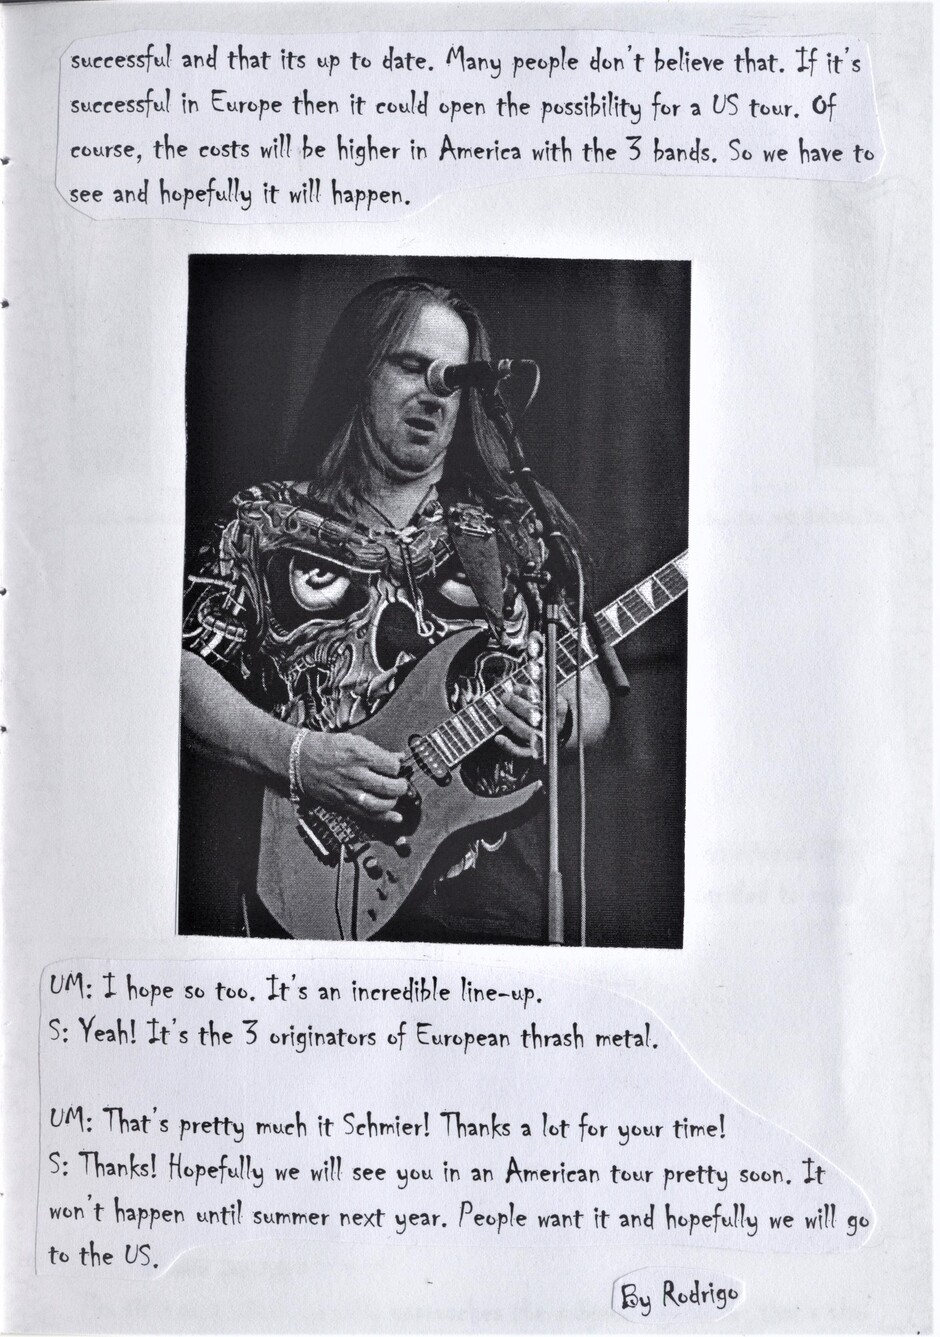 successful and that its up to date. Many people don't believe that. If it's
successful in Europe then it could open the possibility for a US tour. Of
course, the costs will be higher in America with the 3 bands. So we have to
see and hopefully it will happen.
UM: I hope so too. It's an incredible line-up.
S: Yeah! It's the 3 originators of European thrash metal.
UM: That's pretty much it Schmier! Thanks a lot for your time!
S: Thanks! Hopefully we will see you in an American tour pretty soon. It
won't happen until summer next year. People want it and hopefully we will go
to the US.
By Rodrigo